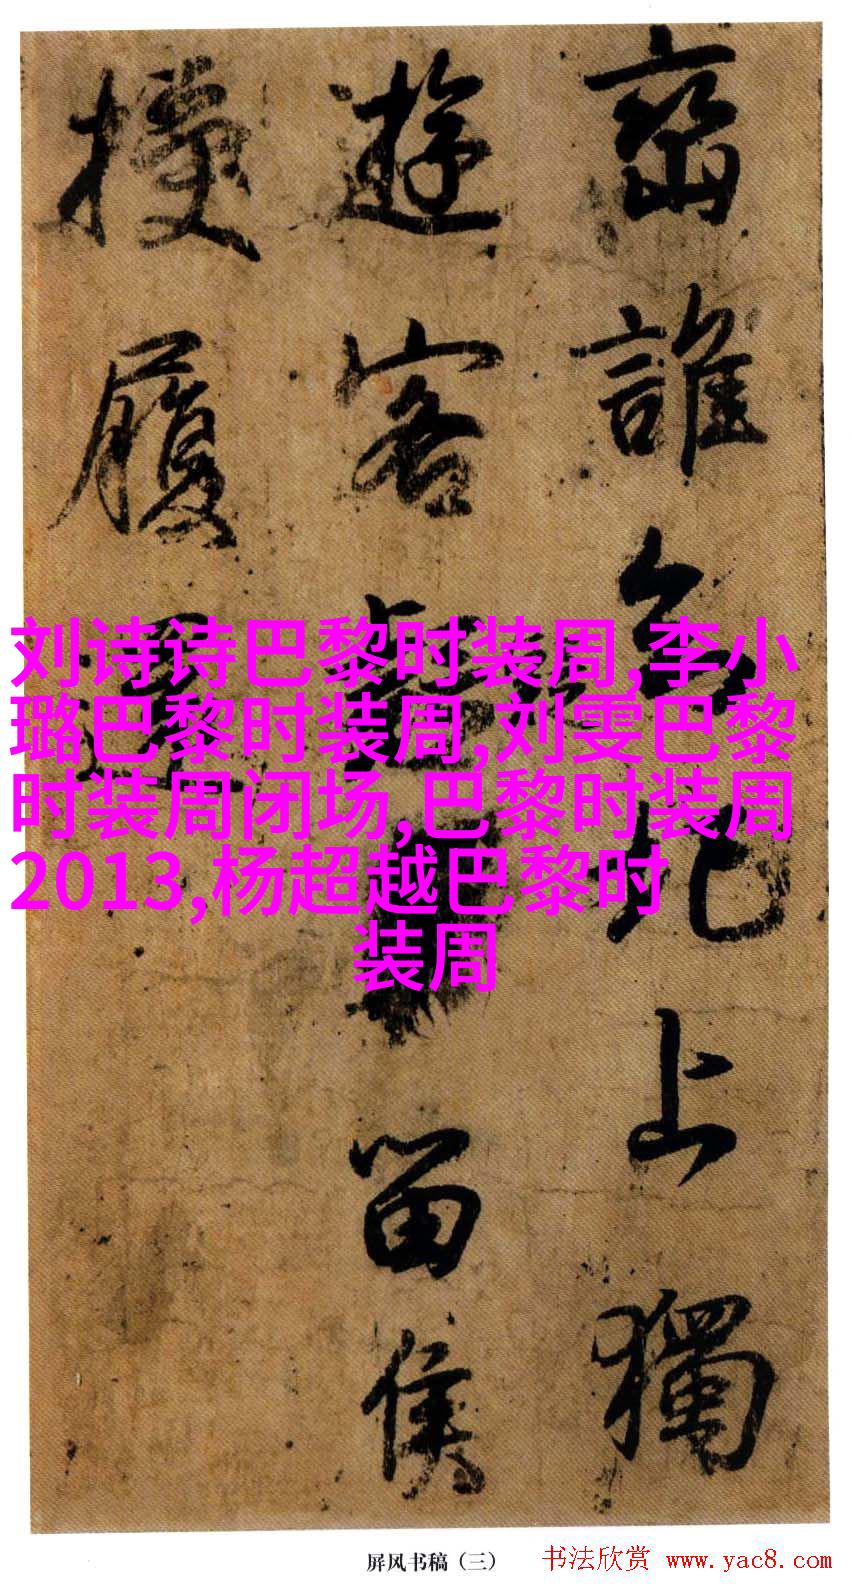 峦誰北上獨
遊客留侯
履
刘诗诗巴黎时装周,李小
璐巴黎时装周,刘雯巴黎
时装周闭场,巴黎时装周
2013,杨超越巴黎时
装周
屏风书稿（三）
书法欣赏 www.yac8.com